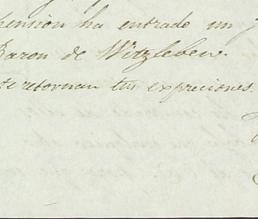 hension ha entrado un
Baron de Witzleben.
te retornan tus expreciones